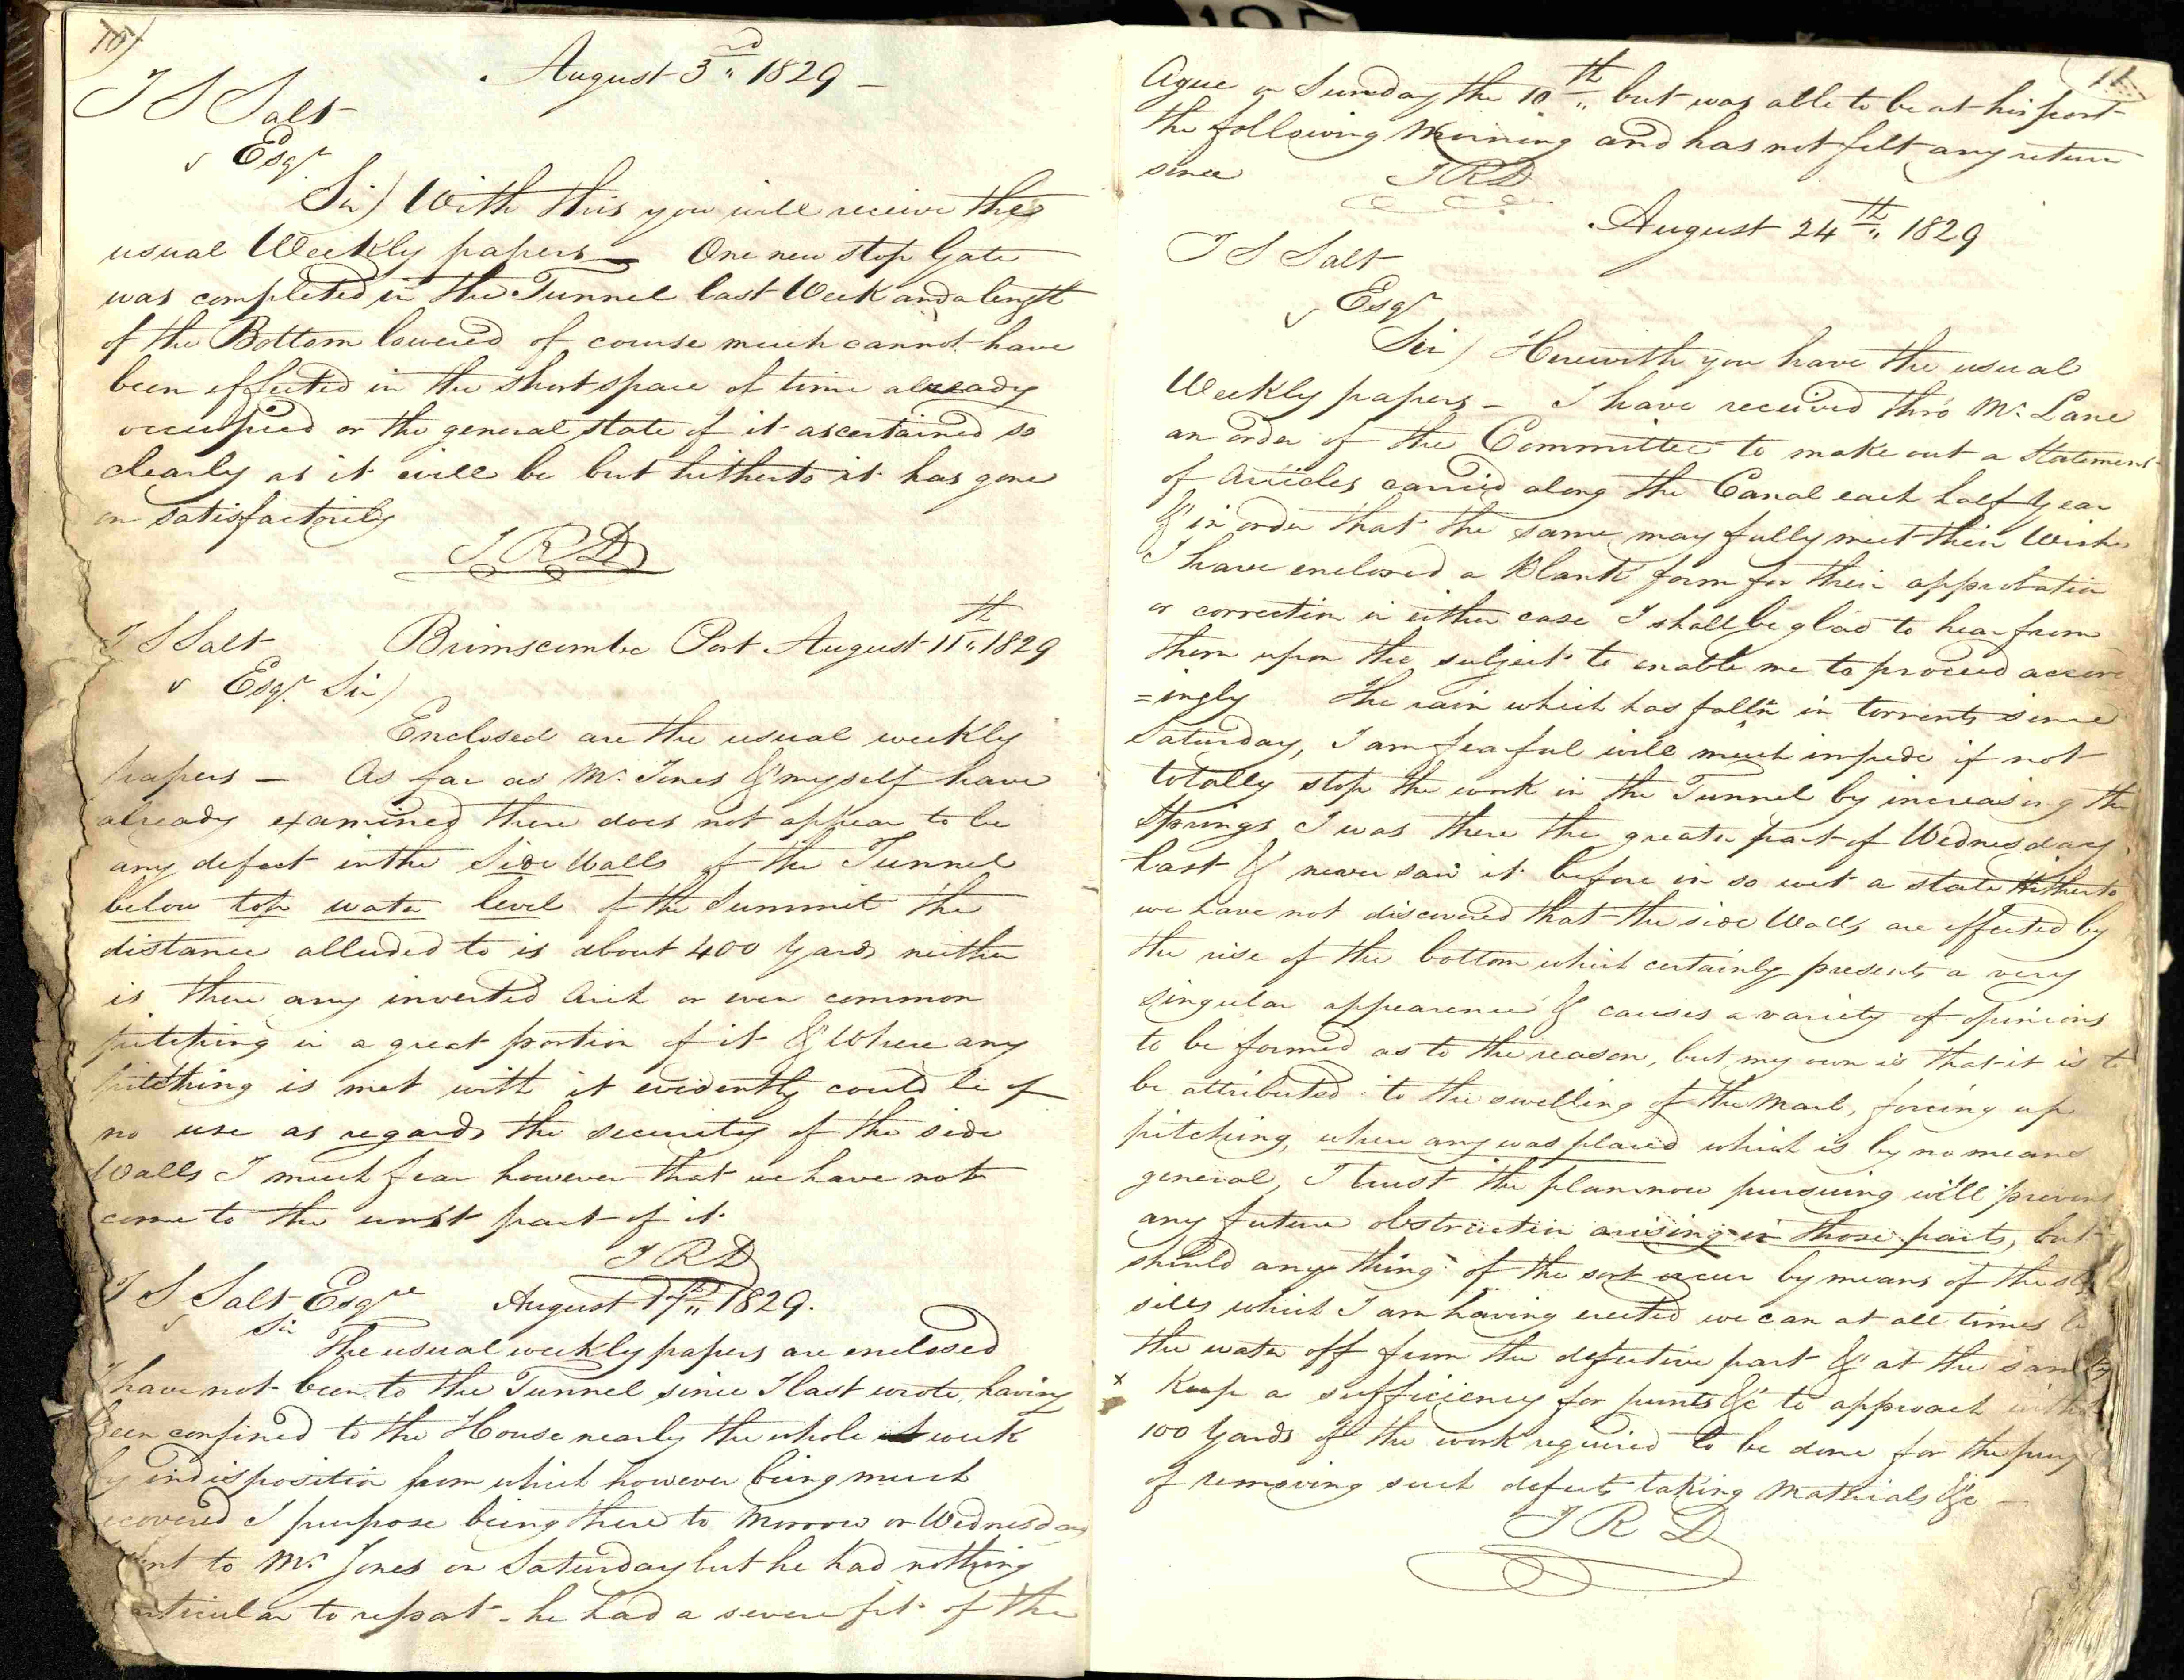 10
August 3rd 1829 –
T S Salt
Esqr
Sir) With this you will receive the
usual Weekly papers – One new stop Gate
was completed in the Tunnel last Week and a length
of the Bottom lowered of course much cannot have
been effected in the short space of time already
occupied or the general state of it ascertained so
clearly as it will be but hitherto it has gone
on satisfactorily
J R D
T S Salt Brimscombe Port August 11th 1829
Esqr. Sir)
Enclosed are the usual weekly
papers – As far as Mr. Jones & myself have
already examined there does not appear to be
any defect in the Side Walls of the Tunnel
below top water level of the Summit the
distance alluded to is about 400 Yards neither
is there any inverted Arch or even common
pitching in a great portion of it & Where any
pitching is met with it evidently could be of
no use as regards the security of the side
Walls I much fear however that we have not
come to the worst part of it
J R D
T S Salt Esqre August 17th 1829.
Sir
The usual weekly papers are enclosed
I have not been to the Tunnel since I last wrote, having
been confined to the House nearly the whole week
by indisposition from which however being much
recovered I purpose being there to Morrow or Wednesday
sent to Mr Jones on Saturday but he had nothing
particular to report – he had a severe fit of the
11
Ague on Sunday the 10th but was able to be at his post
the following Morning and has not felt any return
since J R D
August 24th 1829
T S Salt
Esqr
Sir) Herewith you have the usual
Weekly papers – I have received thro Mr. Lane
an order of the Committee to make out a Statement
of Articles carried along the Canal each half Year
& in order that the same may fully meet their Wishes
I have enclosed a Blank form for their approbation
or correction in either case I shall be glad to hear from
them upon the subject to enable me to proceed accord
=ingly The rain which has fall'n in torrents since
Saturday, I am fearful will much impede if not
totally stop the work in the Tunnel by increasing the
Springs I was there the greater part of Wednesday
last & never saw it before in so wet a state Hitherto
we have not discovered that the side Walls are effected by
the rise of the bottom which certainly presents a very
singular appearence & causes a variety of opinions
to be formed as to the reason, but my own is that it is to
be attributed to the swelling of the Marl, forcing up
pitching, where any was placed which is by no means
general, I trust the plan now pursuing will prevent
any future obstruction arising in those parts, but
should any thing of the sort occur by means of the stop
sills which I am having erected we can at all times
the water off from the defective part & at the same
x Keep a sufficiency for punts &c to approach within
100 Yards of the work required to be done for the
of removing such defects taking Materials &c –
J R D